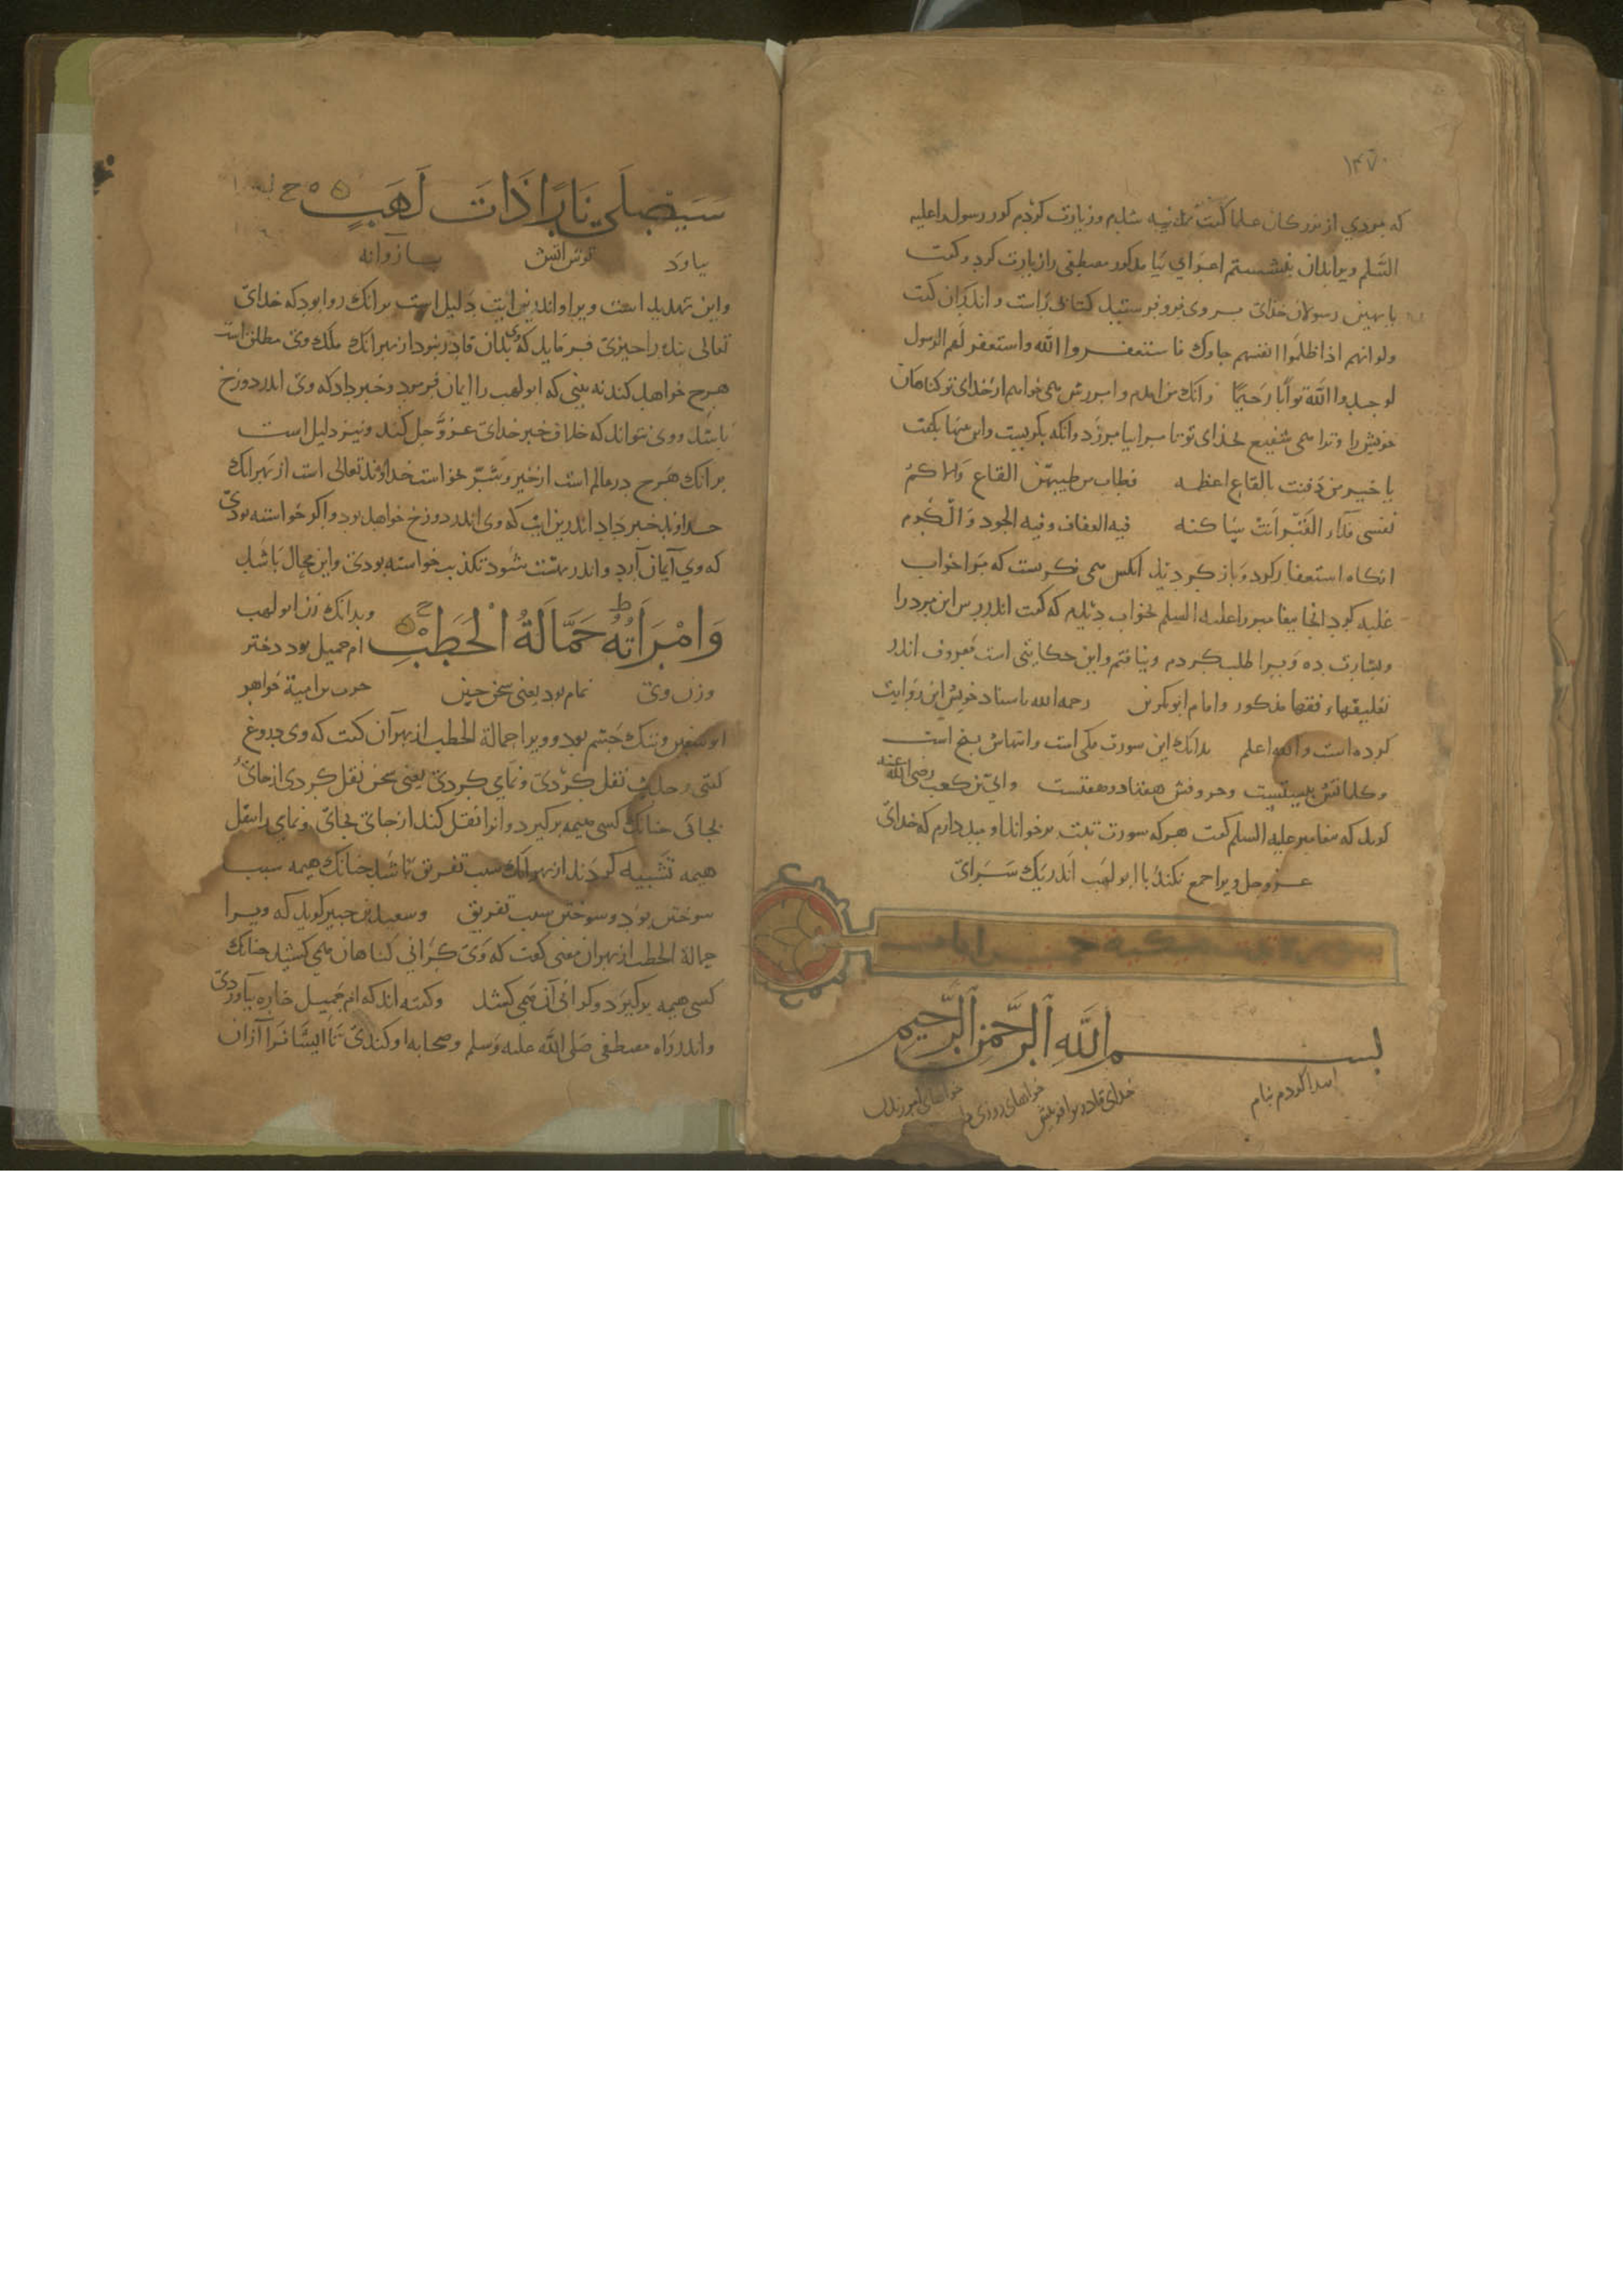 ۱۴۷۰
که مردی از بزرکان علما کفت بمدینه شدم وزیارت کردم کور رسول را علیه
السّلم وبرابران بنشستم اعرابی بیامد کور مصطفی را زیارت کرد وکفت
یا بهین رسولان خدای بر وی فرو فرستید کتاب راست واندران کفت
ولو انهم اذ ظلموا انفسهم جاوک فاستغفروا الله واستغفر لهم الرسول
لوجدوا الله توابا رحیما وانک من امدم وامرزش می خواهم از خدای تو کناهان
خویش را وترا می شفیع بخدای تو تا مرا بیامرزد وانکه بکریست واین بیتها بکفت
یا خیر من دفنت بالقاع اعظمه فطاب من طیبهن القاع والاکم
نفسی فداء القبر انت ساکنه فیه العفاف وفیه الجود والکرم
انکاه استغفار کرد وباز کردید انکس می نکرست که مرا خواب
غلبه کرد انجا پیغامبر را علیه السلم بخواب دیدم که کفت اندر رس این مرد را
وبشارت ده ویرا طلب کردم ونیافتم واین حکایتی است معروف اندر
تعلیقهاء فقها مذکور وامام ابوبکر بن رحمه الله باسناد خویش این روایت
کرده است والله اعلم بدانک این سورت مکی است وایتهاش پنج است
وکلماتش بیستست وحروفش هفتاد وهفتست وابی بن کعب رضی الله عنه
کوید که پیغامبر علیه السلم کفت هر که سورت تبت برخواند اومید دارم که خدای
عزوجل ویرا جمع نکند با ابو لهب اندر یک سرای
بسم الله الرحمن الرحیم
ابتدا کردم بنام خدای قادر بر افرینش خواهای روزی خواهای امرزیدن
سَیَصلَی نَارًا ذَاتَ لَهَبٍ
واین تهدید است ویرا واندرین ایت دلیل است برانک روا بود که خدای
تعالی بنده را چیزی فرماید که وی بدان قادر نبود از بهر انک ملک وی مطلق است
هرچ خواهد کند نه بینی که ابو لهب را ایمان فرمود وخبر داد که وی اندر دوزخ
باشد ووی نتواند که خلاف خبر خدای عزّوجل کند ونیز دلیل است
برانک هرچ در عالم است از خیر وشرّ بخواست خداوند تعالی است از بهر انک
خداوند خبر داد اندرین ایت که وی اندر دوزخ خواهد بود واکر خواسته بودی
که وی ایمان آرد واندر بهشت شود تکذیب خواسته بودی واین محال باشد
وَامْرَاَتُهُ حَمَّالَةُ الْحَطَبِ وبدانک زن ابو لهب
ام جمیل بود دختر
وزن وی نمام بود یعنی سخن چین حرب بن امیة خواهر
ابو سفین وتنک چشم بود وویرا حمالة الحطب از بهر آن کفت که وی دروغ
کفتی وحدیث نقل کردی ونمّامی کردی یعنی سخن نقل کردی از جائ
بجائی چنانک کسی هیمه برکیرد وانرا نقل کند از جای بجای ونمامی را بنقل
هیمه تشبیه کردند از بهر انک سبب تفریق باشد چنانک هیمه سبب
سوختن بود وسوختن سبب تفریق وسعید بن جبیر کوید که ویرا
حمالة الحطب از بهر ان معنی کفت که وی کرانی کناهان می کشید چنانک
کسی هیمه برکیرد وکرانی آن همی کشد وکفته اند که ام جمیل خاره بیاوردی
واندر راه مصطفی صلی الله علیه وسلم وصحابه او کندی تا ایشان را آزان